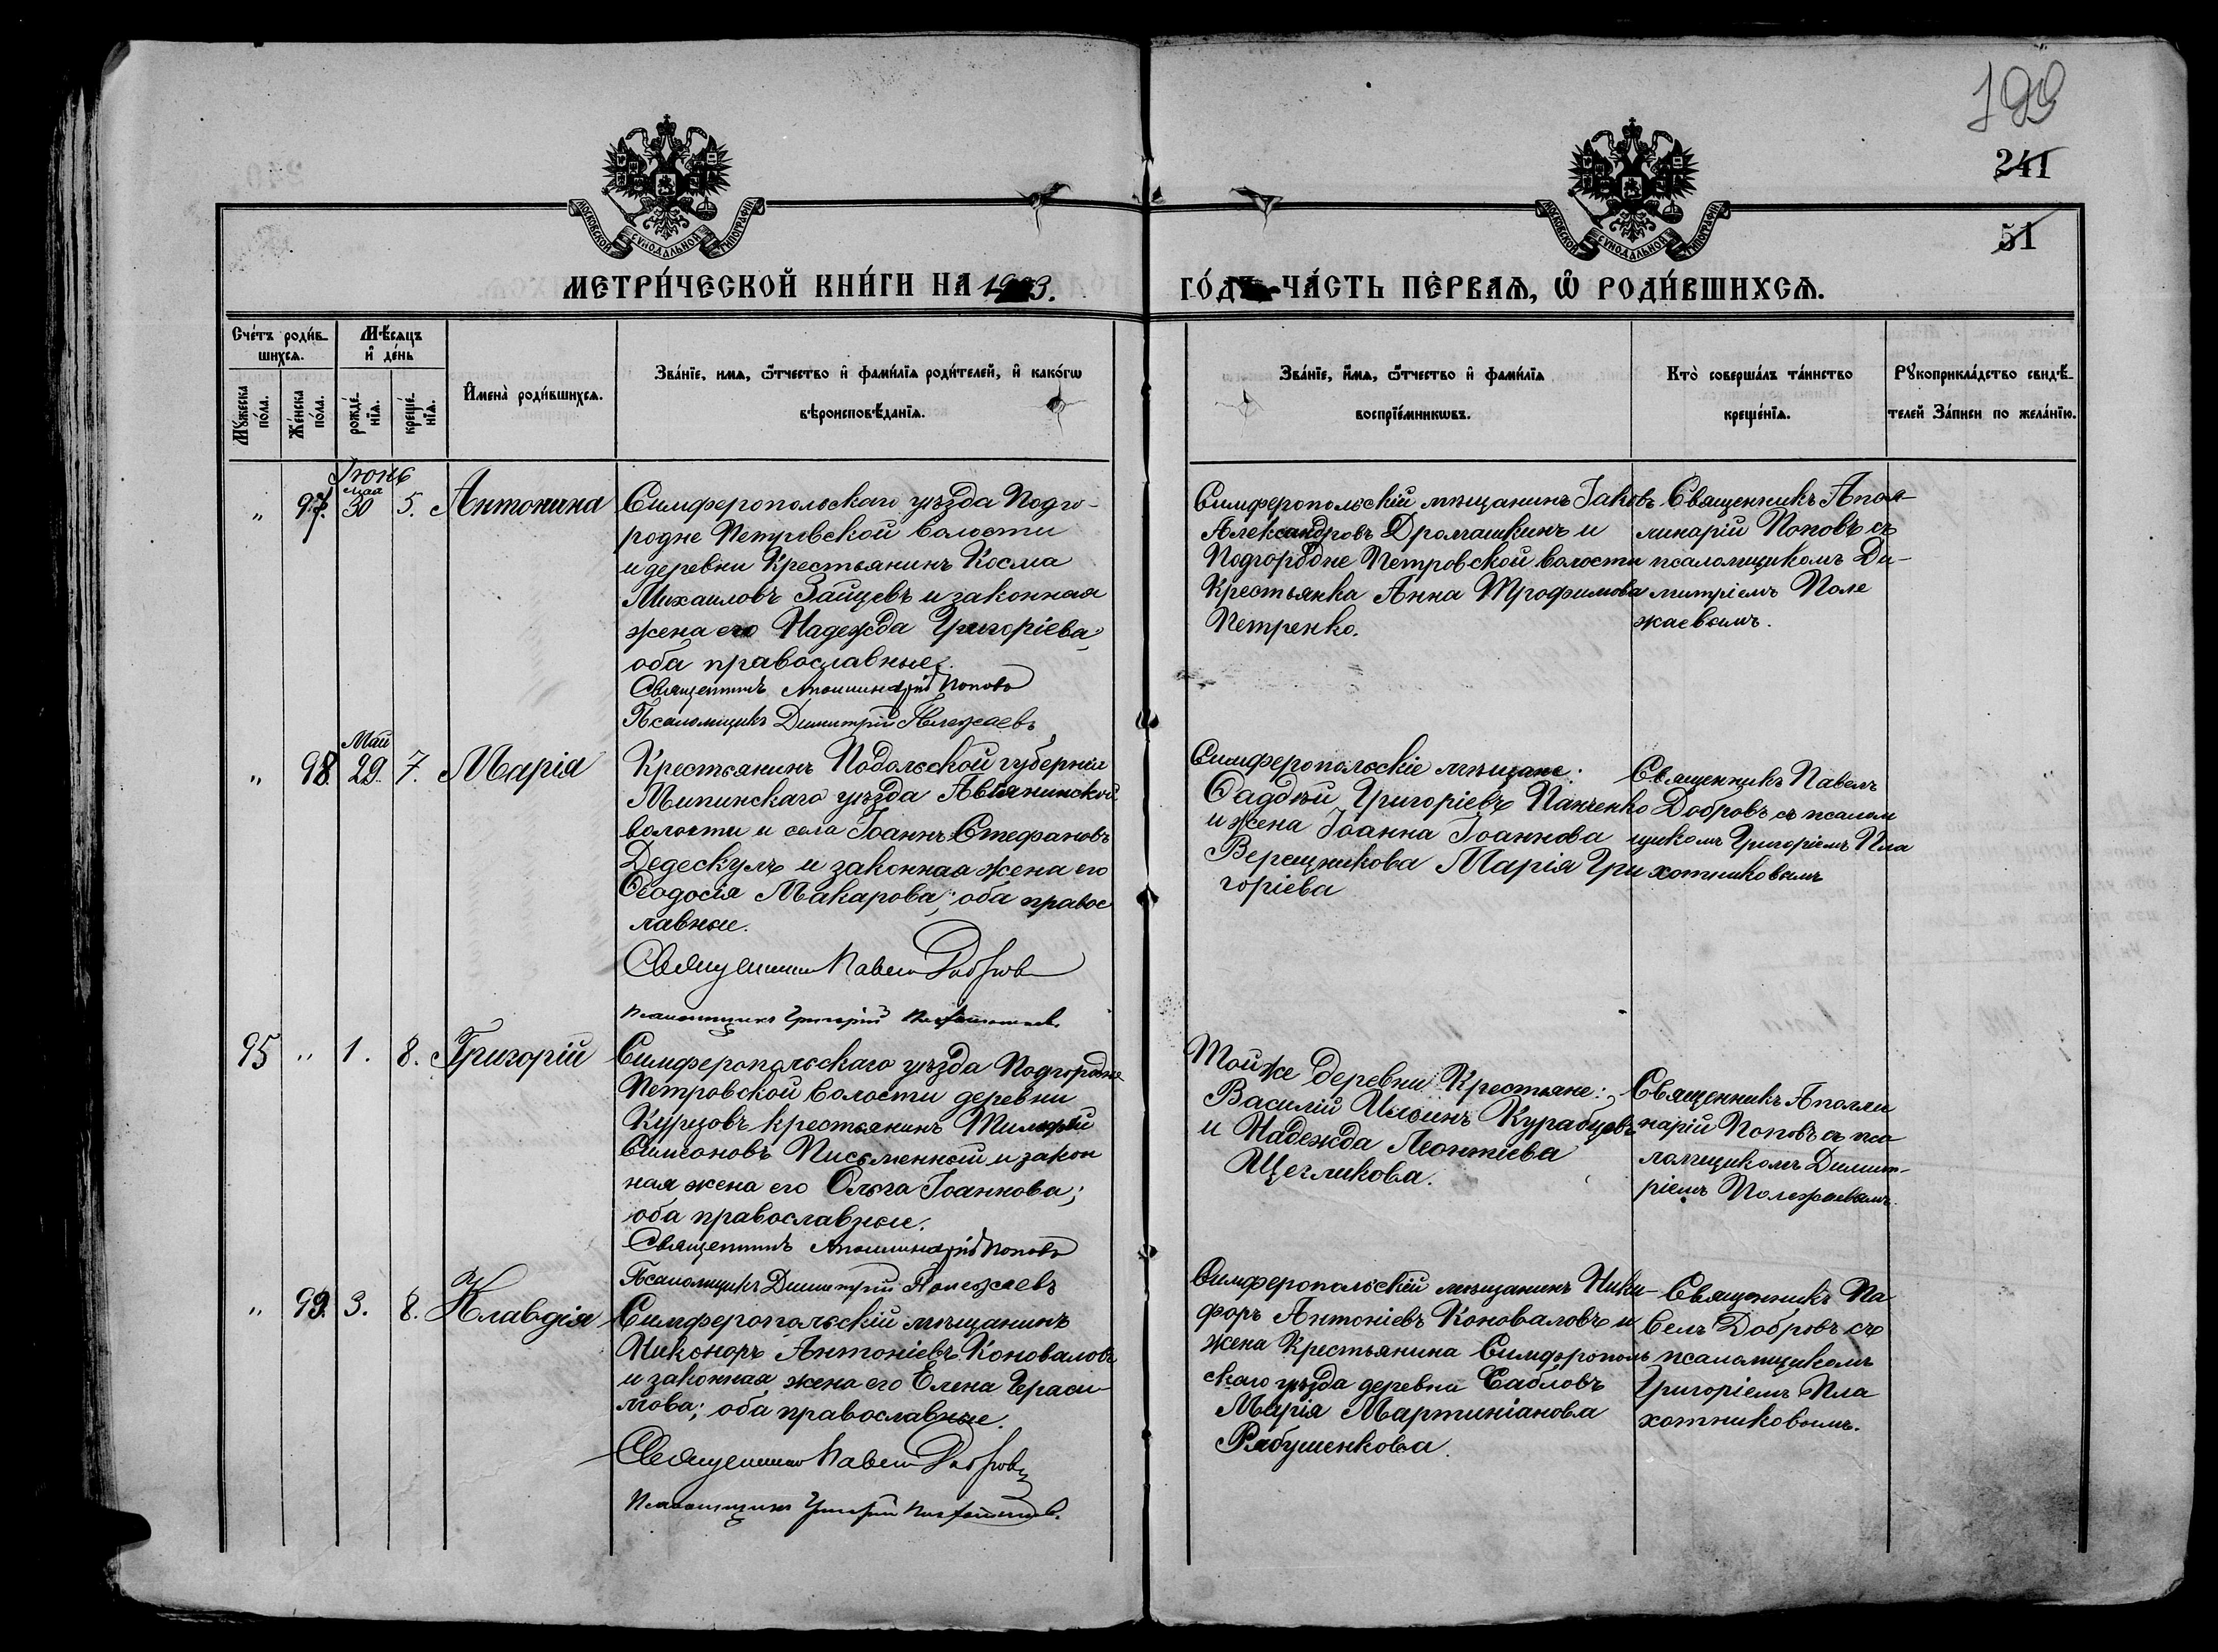 199
241
51
МОСКОВСКОЙ СѴНОДАЛЬНОЙ ТИПОГРАФІИ
МОСКОВСКОЙ СѴНОДАЛЬНОЙ ТИПОГРАФІИ
МЕТРИ́ЧЕСКОЙ КНИ́ГИ НА 1903.
ГО́ДЪ ЧА́СТЬ ПЕ́РВАѦ, Ѡ҆ РОДИ́ВШИХСѦ.
Сче́тъ роди́в-
шихсѧ.
Мѣ́сѧцъ
и҆ де́нь
Мꙋ́жеска
по́ла.
Же́нска
по́ла.
рожде́-
нїѧ.
креще́-
нїѧ.
И҆мена̀ роди́вшихсѧ.
Зва́нїе, имѧ, ѻ҆́тчество и҆ фами́лїѧ роди́телей, и҆ како́гѡ
вѣроисповѣ́данїѧ.
Зва́нїе, и҆́мѧ, ѻ҆́тчество и҆ фами́лїѧ
воспрїе́мникѡвъ.
Кто̀ соверша́лъ та́инство
креще́нїѧ.
Рꙋкоприкла́дство свидѣ́-
телей За́писи по жела́нїю.
Іюнь
мая
" 97. 30 5. Антонина
Симферопольскаго уѣзда Подго-
родне Петровской волости
и деревни Крестьянинъ Косма
Михаиловъ Зайцевъ и законная
жена его Надежда Григоріева;
оба православные.
Священникъ Аполлинарій Поповъ
Псаломщикъ Димитрій Полежаевъ
Симферопольскій мѣщанинъ Іаковъ
Александровъ Дромашкинъ и
Подгородне Петровской волости
Крестьянка Анна Трофимова
Петренко.
Священникъ Апол-
линарій Поповъ съ
псаломщикомъ Ди-
митріемъ Поле
жаевымъ.
Май
" 98. 29. 7. Марія
Крестьянинъ Подольской губерніи
волости и села Іоаннъ Стефановъ
Дедескулъ и законная жена его
Ѳеодосія Макарова; оба правос
лавные.
Священникъ Павелъ Добровъ
Псаломщикъ Григорій Плахотниковъ
Симферопольскіе мѣщане:
Ѳаддѣй Григоріевъ Панченко
и жена Іоанна Іоаннова
Верещникова Марія Гри
горіева
Священникъ Павелъ
Добровъ съ псалом
щикомъ Григоріемъ Пла
хотниковымъ
95 " 1. 8. Григорій
Симферопольскаго уѣзда Подгородне
Петровской волости деревни
Курцовъ крестьянинъ Тимофей
Симеоновъ Письменный и закон
ная жена его Ольга Іоаннова;
оба православные.
Священникъ Аполлинарій Поповъ
Псаломщикъ Димитрій Полежаевъ
Той же деревни Крестьяне:
Василій Ильинъ Курабцовъ
и Надежда Леонтіева
Щегликова.
Священникъ Аполли
нарій Поповъ съ пса
ломщикомъ Димит-
ріемъ Полежаевымъ.
" 99. 3. 8. Клавдія
Симферопольскій мѣщанинъ
Никоноръ Антоніевъ Коноваловъ
и законная жена его Елена Гераси-
мова; оба православные.
Священникъ Павелъ Добровъ
Псаломщикъ Григорій Плахотниковъ.
Симферопольскій мѣщанинъ Ники-
форъ Антоніевъ Коноваловъ и
жена Крестьянина Симферополь
скаго уѣзда деревни Сабловъ
Марія Мартиніанова
Рябушенкова.
Священникъ Па
велъ Добровъ съ
псаломщикомъ
Григоріемъ Пла
хотниковымъ.